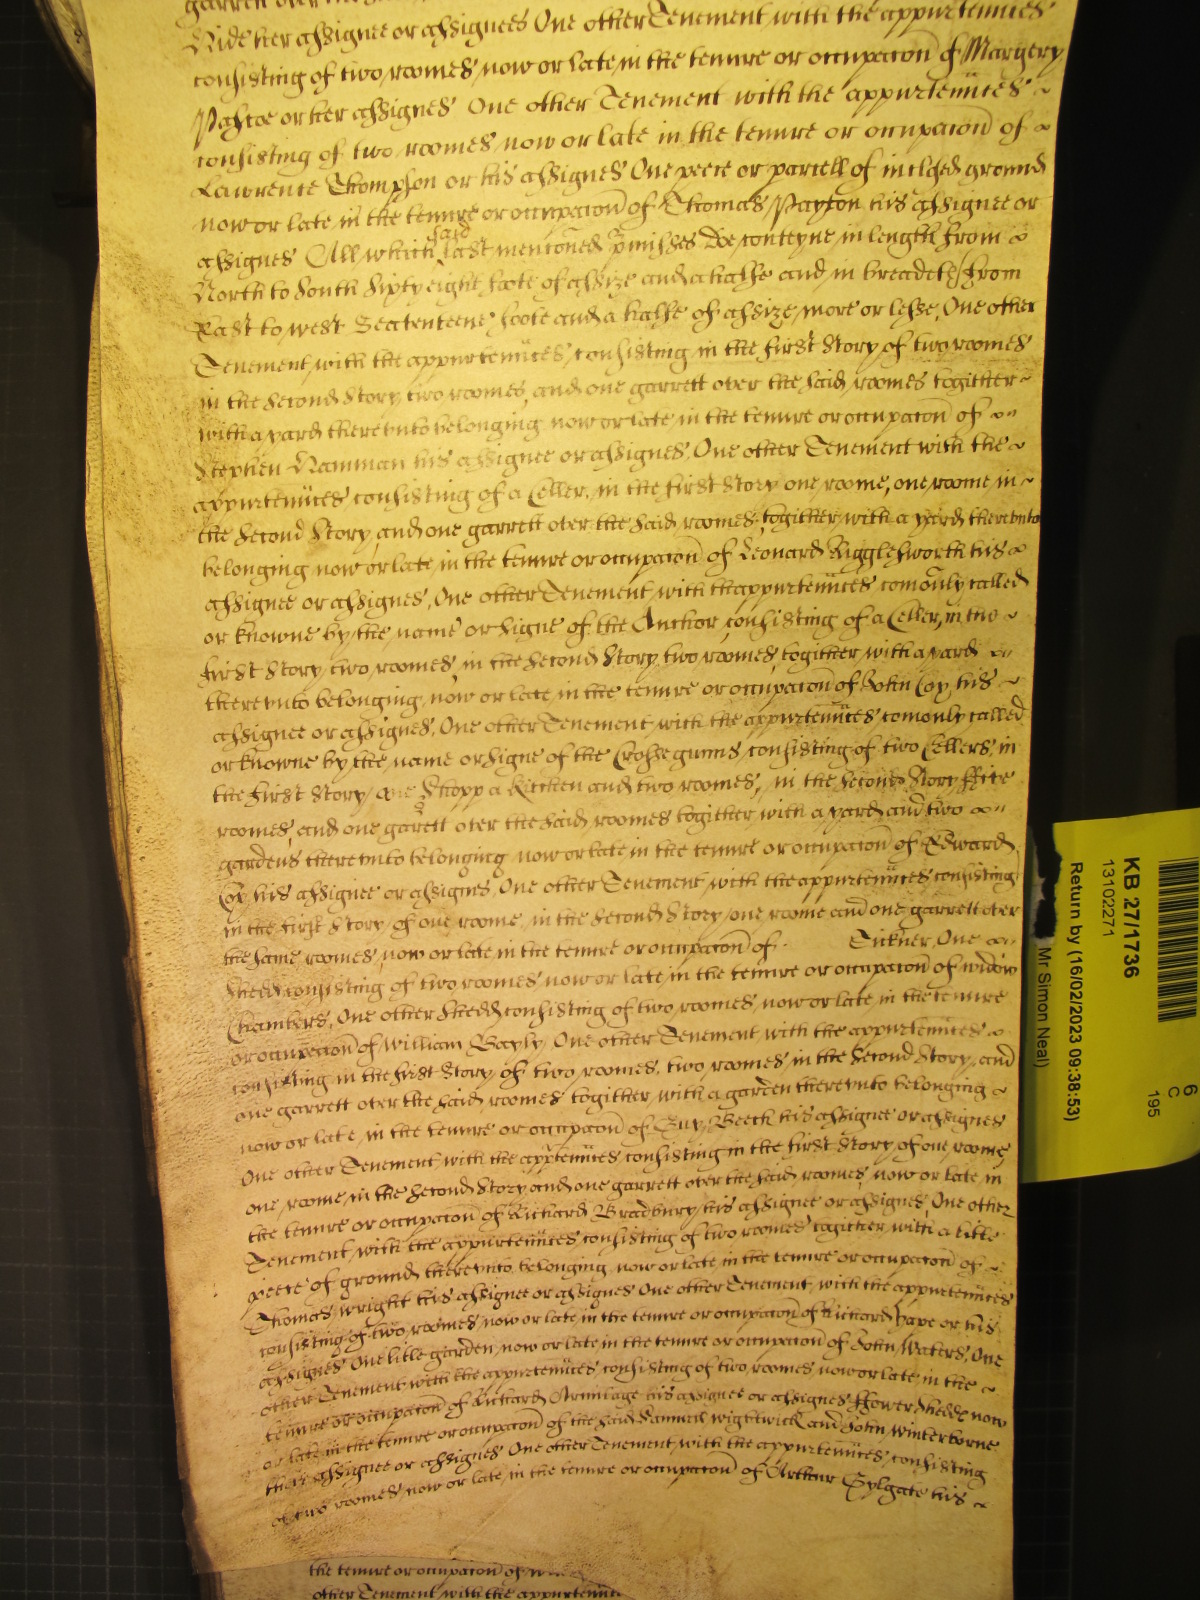 garrett over the
Ride her assignee or assignees One other Tenement with the appurtennces
consisting of two roomes now or late in the tenure or occupacon of Margery
Pascoe or her assignes One other Tenement with the appurtenнces
consisting of two roomes now or late in the tenure or occupacon of
Lawrence Thompson or his assignes One peece or parcell of inclosed ground
now or late in the tenure or occupacon of Thomas Payton his assignee or
assignes All which said last mentoned pmisses doe conteyne in length from
North to South Sixty eight foote of assize and a halfe and in breadth from
East to west Seaventeene foote and a halfe of assize more or lesse, One other
Tenement with the appurtennces consisting in the first Story of two roomes
in the second Story two roomes, and one garrett over the said roomes togither
with a yard therevnto belonging now or late in the tenure or occupacon of
Stephen Namman his assignee or assignes, One other Tenement with the
appurtennces consisting of a Celler, in the first Story one roome, one roome in
the second Story, and one garrett over the said roomes, togither with a yard therevnto
belonging now or late in the tenure or occupacon of Leonard Rigglesworth his
assignee or assignes, One other Tenement with the appurtennces comonly called
or knowne by the name or signe of the Anchor consisting of a Celler, in the
first Story two roomes, in the second Story two roomes, togither with a yard
therevnto belonging, now or late in the tenure or occupacon of John Coy, his
assignee or assignes, One other Tenement with the appurtennces comonly called
or knowne by the name or signe of the Crosse gunns, consisting of two Cellers, in
the first Story, one Shopp a Kitchen and two roomes, in the second Story ffive
roomes, and one garrett over the said roomes togither with a yard and two
gardens therevnto belonging now or late in the tenure or occupacon of Edward
Coy his assignee or assignes, One other Tenement with the appurtennces consisting
in the first Story of one roome, in the second Story one roome and one garrett over
the same roomes, now or late in the tenure or occupacon of Tickner, One
shedd consisting of two roomes now or late in the tenure or occupacon of widow
Chambers, One other shedd consisting of two roomes, now or late in the tenure
or occupacon of William Bayly, One other Tenement with the appurtennces
consisting in the first Story of two roomes, two roomes in the second Story, and
one garrett over the said roomes togither with a garden therevnto belonging
now or late in the tenure or occupacon of Guy Beech his assignee or assignes
One other Tenement with the appurtennces consisting in the first Story of one roome,
one roome in the second Story and one garrett over the said roomes, now or late in
the tenure or occupacon of Richard Bradbury his assignee or assignes, One other
Tenement with the appurtennces consisting of two roomes togither with a litle
peece of ground therevnto belonging now or late in the tenure or occupacon of
Thomas wright his assignee or assignes One other Tenement with the appurtennces
consisting of two roomes now or late in the tenure or occupacon of Richard or his
assignes One litle garden now or late in the tenure or occupacon of John Waters, One
other Tenement with the appurtennces consisting of two roomes now or late in the
tenure or occupacon of Richard Armitage his assignee or assignes ffower shedds now
or late in the tenure or occupacon of the said Samuel wightwick and John winterborne
their assignee or assignes One other Tenement with the appurtennces consisting
of two roomes now or late in the tenure or occupacon of Arthur Sylgate his
the tenure or occupacon of
other Tenement with the
KB 27/1736
13102271
Return by (16/02/2023 09:38:53)
Mr Simon Neal)
6
C
195